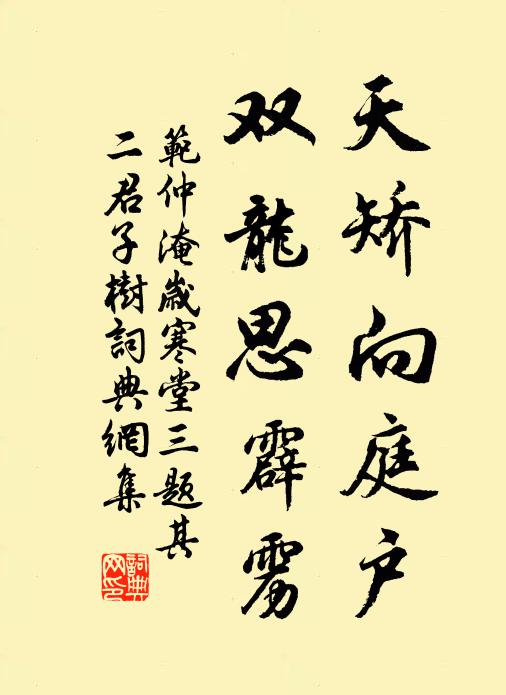 天矫向庭户
双龍思霹雳
範仲淹歲寒堂三題其
二君子樹詞典網集
詞典
网印